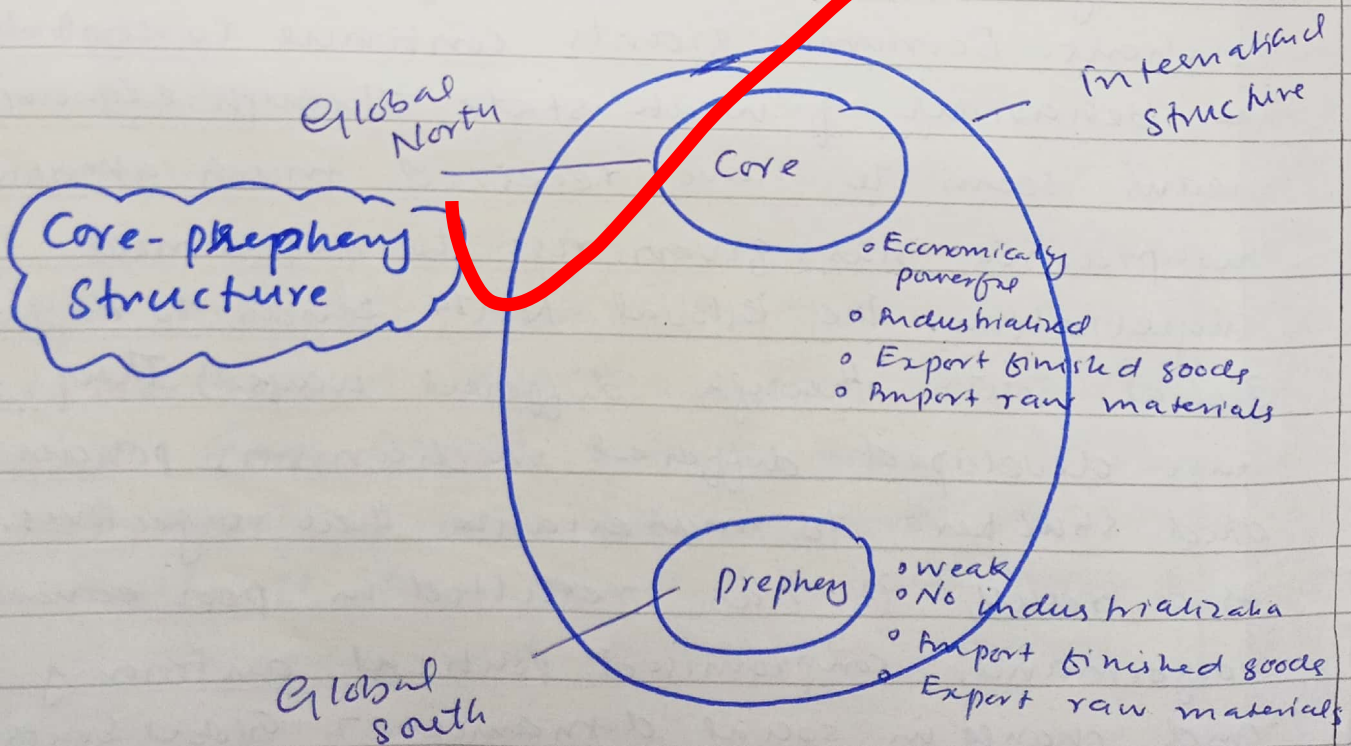 Global
North
Core
International
Structure
Core-prephery
Structure
• Economically
powerful
• Industrialized
• Export finished goods
• Import raw materials
Prephery
• Weak
• No industrialization
• Import finished goods
• Export raw materials
Global
South